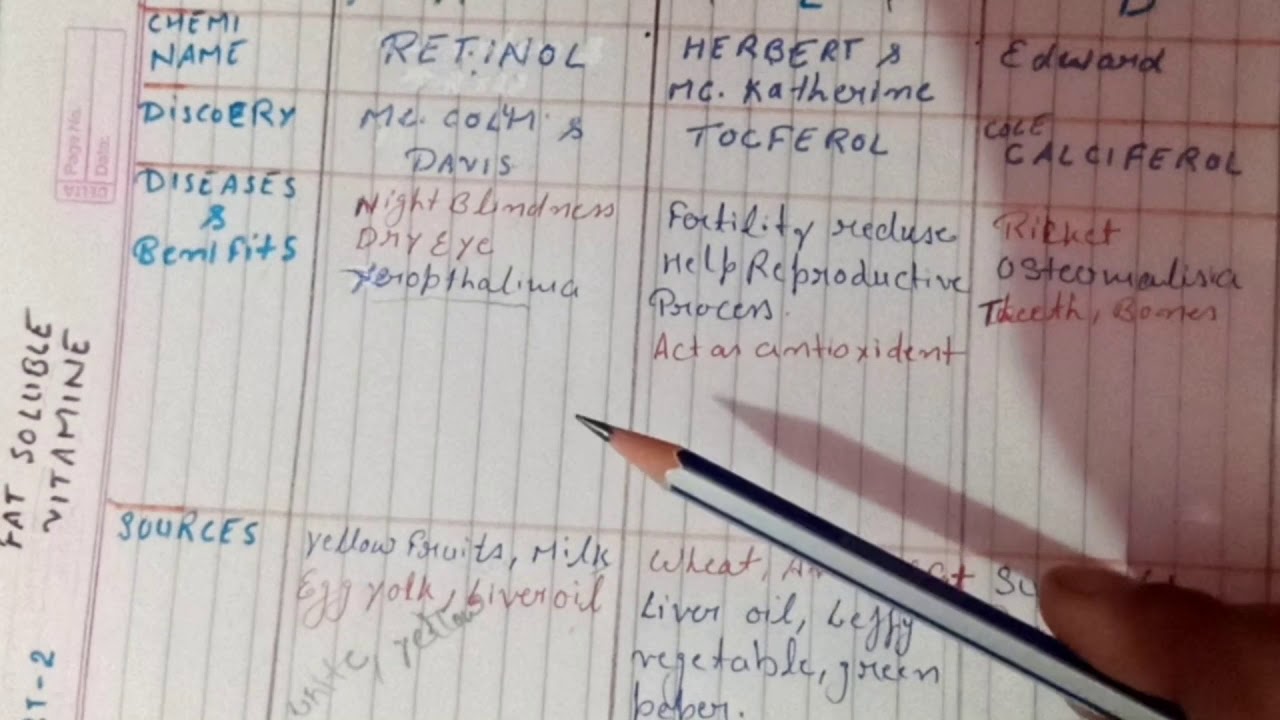 CHEMI
NAME
RETINOL
HERBERT &
Mc. Katherine
Edward
DiscoERY
Mc. COLM &
DAVIS
TOCFEROL
COLE
CALCIFEROL
DISEASES
&
Benifits
Night Blindness
Dry Eye
Xeropthalima
Fertility reduse
Help Reproductive
Process.
Act as antioxident
Ricket
Osteomalisia
Teeth, Bones
SOURCES
Yellow fruits, Milk
Egg yolk, Liver oil
white, yellow
Wheat,
Liver oil, Leffy
vegetable, green
peper.
FAT SOLUBLE
VITAMINE
RT-2
Page No.
Date:
DELTA